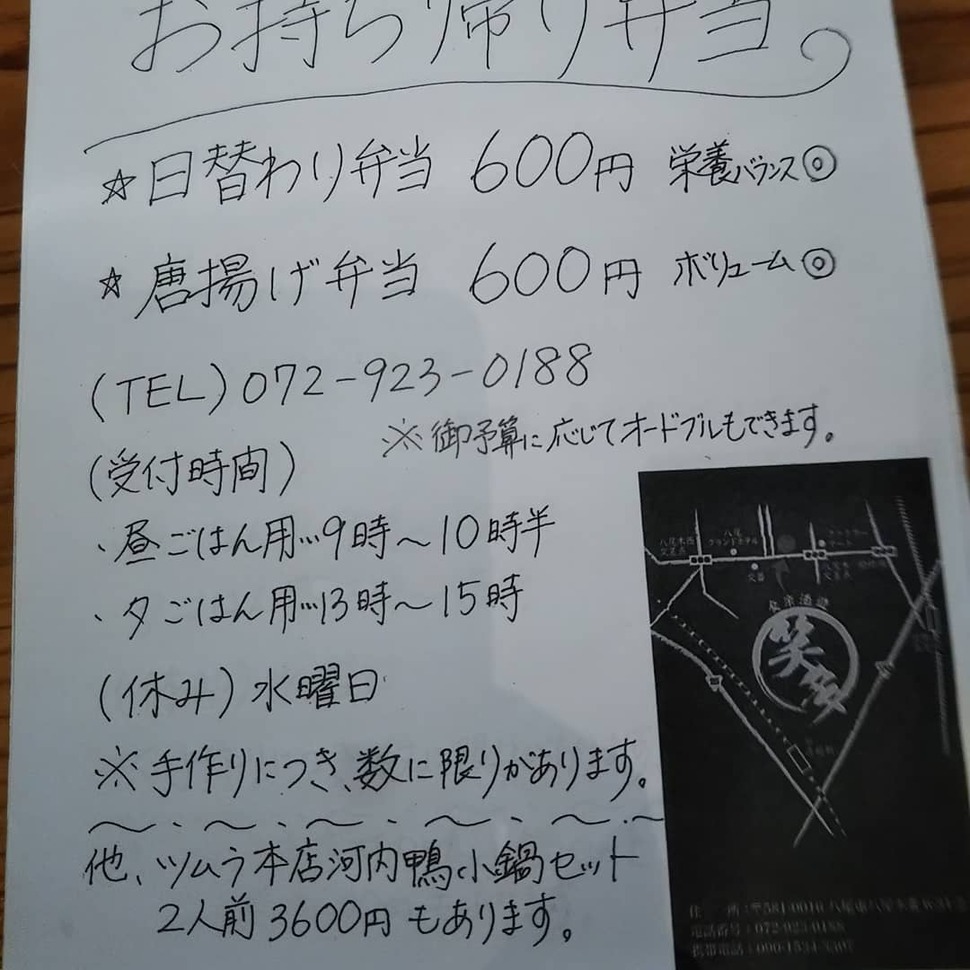 お持ち帰り弁当
☆日替わり弁当 600円 栄養バランス◎
☆唐揚げ弁当 600円 ボリューム◎
(TEL)072-923-0188
※御予算に応じてオードブルもできます。
(受付時間)
・昼ごはん用…9時～10時半
・夕ごはん用…13時～15時
(休み)水曜日
※手作りにつき、数に限りがあります。
他、ツムラ本店河内鴨小鍋セット
2人前3600円もあります。
八尾木西
交差点
八尾
グランドホテル
交番
笑多
電話番号：072-923-0188